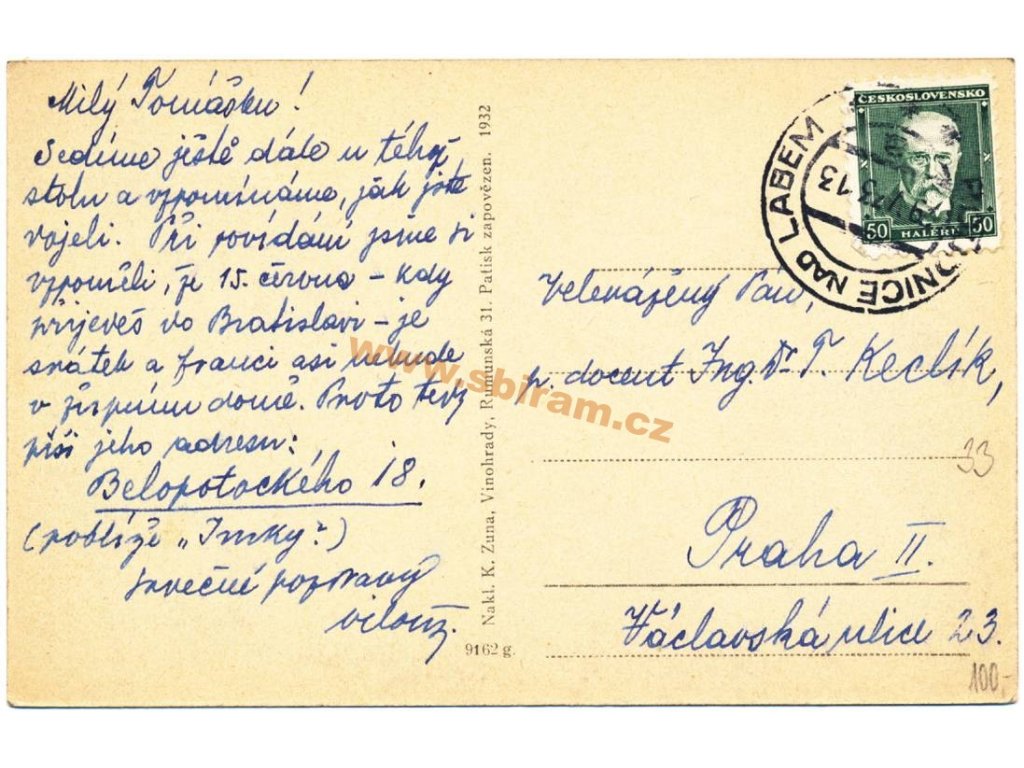 Milý Tomášku!
Sedíme ještě dále u téhož
stolu a vzpomínáme, jak jste
vojeli. Při povídání jsme si
vzpoměli, že 15. června – kdy
přijeveš vo Bratislavi – je
svátek a franci asi nebude
v žispením domě. Proto tevz
píši jeho adresu:
Belopotockého 18.
(poblíže „Imky“)
srvečné pozdravy
Nakl. K. Zuna, Vinohrady, Rumunská 31. Patisk zapovězen. 1932
9162 g.
ČESKOSLOVENSKO
50 HALÉŘŮ 50
DNICE NAD LABEM
13
Velevážený Pán,
p. docent Ing. Dr. T. Keclík,
Praha II.
Václavská ulice 23.
33
100,-
www.sbiram.cz